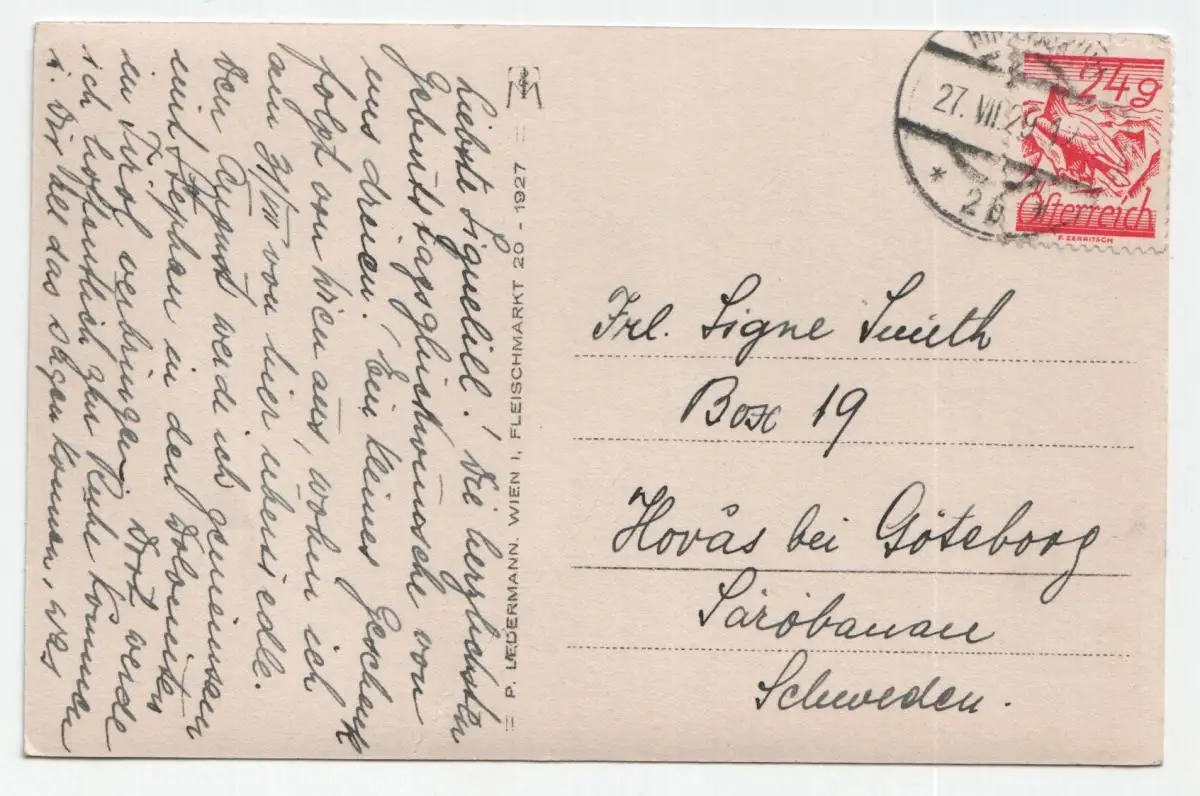 Liebste Signelill! Die herzlichsten
Geburtstagsglückwünsche von
uns dreien! Ein kleines Geschenk
folgt von Wien aus, wohin ich
am 31/VII von hier übersiedle.
Den August werde ich gemeinsam
mit Stephan in den Dolomiten
in Tirol verbringen. Dort werde
ich hoffentlich zur Ruhe kommen
u. Dir all das sagen können, was
= P. LEDERMANN. WIEN I, FLEISCHMARKT 20 - 1927 =
27. VII. 29
* 2b *
24g
Österreich
F. ZERRITSCH
Frl. Signe Smith
Box 19
Hovås bei Göteborg
Säröbanan
Schweden.